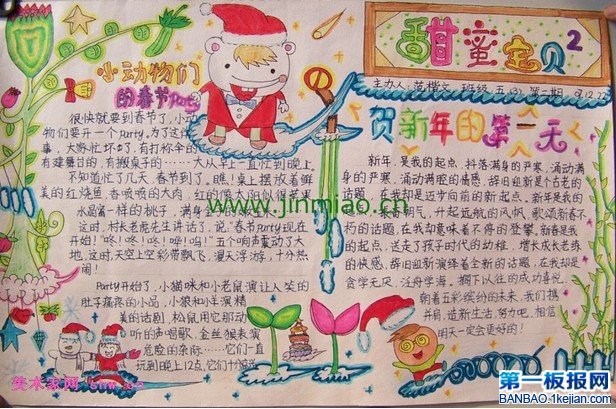 甜蜜宝贝 2
主办人:黄樱文 班级:五(3) 第一期
小动物们
的春节Party
很快就要到春节了,小动
物们要开一个party。为了这件
事,大家忙坏了。有打扮伞的
有建舞台的,有搬桌子的……大从早上一直忙到晚上,
不知道忙了几天 春节到了。瞧!桌上摆放着鲜
美的红烧鱼 香喷喷的大肉
水晶蒂一样的桃子,满身
这时,村长老虎先生讲话了,说:“春节Party现在
开始!”“咚!咚!咚!哗!呜!”五个响声震动了大
地,这时,天空上空彩带飘飞,漫天浮游,十分热
闹!
Party开始了,小猫咪和小老鼠演让人笑的
肚子痛疼的小品,小狼和羊演精
美的话剧,松鼠用它那动
听的声唱歌,金丝猴表演
危险的杂际……它们一直
玩到晚上12点,它们才
贺新年的第一天
新年,是我的起点,抖落满身的严寒,涌动满
身的严寒,涌动满腔的情感,辞旧迎新是个古老的
话题,在我却是迈步向前的新起点。新年是我的
朝气,升起远航的风帆,歌颂新春不
朽的话题,在我却意味着不停的登攀。新春是我
的起点,送走了孩子时代的幼稚,增长成长老练
的快感,辞旧迎新演绎着全新的话题,在我却是
食学无厌,泛舟学海,搁下以往的成功喜悦,
朝着五彩缤纷的未来,我们携
并肩,造新生活,努力吧,相信
明天一定会更好的!
www.jinmiao.cn
美术家网
第一板报网
BANBAO.1kejian.com